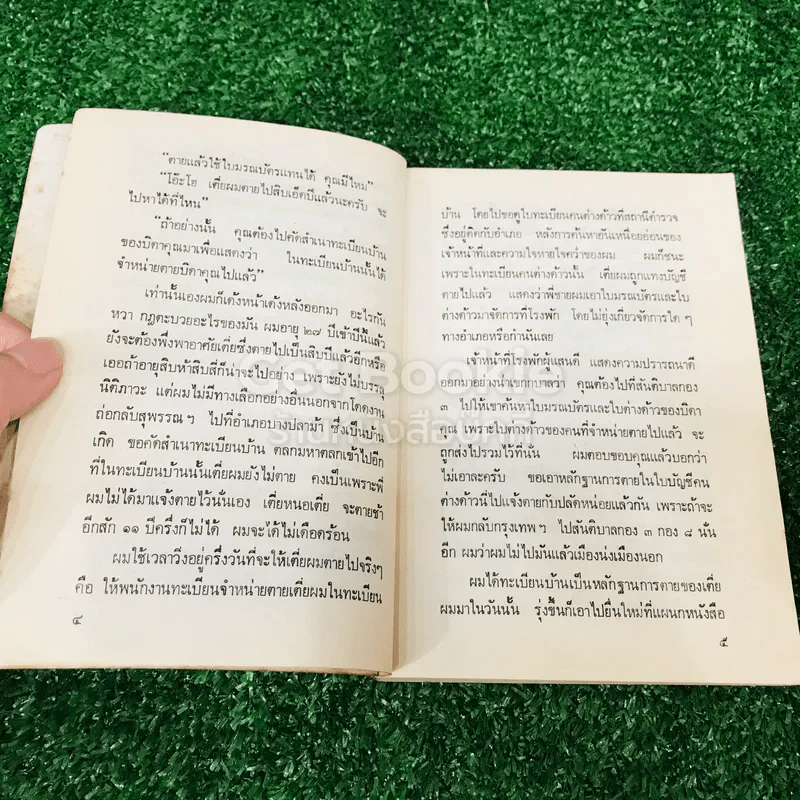 “ตายแล้วใช้ใบมรณบัตรแทนได้ คุณมีไหม”
“โอ๊ะโอ เตี่ยผมตายไปสิบเอ็ดปีแล้วนะครับ จะ
ไปหาได้ที่ไหน”
“ถ้าอย่างนั้น คุณต้องไปคัดสำเนาทะเบียนบ้าน
ของบิดาคุณมาเพื่อแสดงว่า ในทะเบียนบ้านนั้นได้
จำหน่ายตายบิดาคุณไปแล้ว”
เท่านั้นเองผมก็เด้งหน้าเด้งหลังออกมา อะไรกัน
หวา กฎตะบวยอะไรของมัน ผมอายุ ๒๗ ปีเข้าปีนี้แล้ว
ยังจะต้องพึ่งพาอาศัยเตี่ยซึ่งตายไปเป็นสิบปีแล้วอีกหรือ
เออถ้าอายุสิบห้าสิบสี่ก็น่าจะไปอย่าง เพราะยังไม่บรรลุ
นิติภาวะ แต่ผมไม่มีทางเลือกอย่างอื่นนอกจากโดดงาน
ถ่อกลับสุพรรณฯ ไปที่อำเภอบางปลาม้า ซึ่งเป็นบ้าน
เกิด ขอคัดสำเนาทะเบียนบ้าน ตลกมหาตลกเข้าไปอีก
ที่ในทะเบียนบ้านนั้นเตี่ยผมยังไม่ตาย คงเป็นเพราะพี่
ผมไม่ได้มาแจ้งตายไว้นั่นเอง เตี่ยหนอเตี่ย จะตายช้า
อีกสัก ๑๑ ปีครึ่งก็ไม่ได้ ผมจะได้ไม่เดือดร้อน
ผมใช้เวลาวิ่งอยู่ครึ่งวันที่จะให้เตี่ยผมตายไปจริงๆ
คือ ให้พนักงานทะเบียนจำหน่ายตายเตี่ยผมในทะเบียน
๔
บ้าน โดยไปขอดูใบทะเบียนคนต่างด้าวที่สถานีตำรวจ
ซึ่งอยู่ติดกับอำเภอ หลังการค้นหาอันเหนื่อยอ่อนของ
เจ้าหน้าที่และความใจหายใจคว่ำของผม ผมก็ชนะ
เพราะในทะเบียนคนต่างด้าวนั้น เตี่ยผมถูกแทงบัญชี
ตายไปแล้ว แสดงว่าพี่ชายผมเอาใบมรณบัตรและใบ
ต่างด้าวมาจัดการที่โรงพัก โดยไม่ยุ่งเกี่ยวจัดการใดๆ
ทางอำเภอหรือกำนันเลย
เจ้าหน้าที่โรงพักผู้แสนดี แสดงความปรารถนาดี
ออกมาอย่างน้ำเขกกบาลว่า คุณต้องไปที่สันติบาลกอง
๓ ไปให้เขาค้นหาใบมรณบัตรและใบต่างด้าวของบิดา
คุณ เพราะใบต่างด้าวของคนที่จำหน่ายตายไปแล้ว จะ
ถูกส่งไปรวมไว้ที่นั่น ผมตอบขอบคุณแล้วบอกว่า
ไม่เอาละครับ ขอเอาหลักฐานการตายในใบบัญชีคน
ต่างด้าวนี้ไปแจ้งตายกับปลัดหน่อยแล้วกัน เพราะถ้าจะ
ให้ผมกลับกรุงเทพฯ ไปสันติบาลกอง ๓ กอง ๘ นั่น
อีก ผมว่าผมไม่ไปมันแล้วเมืองน่งเมืองนอก
ผมได้ทะเบียนบ้านเป็นหลักฐานการตายของเตี่ย
ผมมาในวันนั้น รุ่งขึ้นก็เอาไปยื่นใหม่ที่แผนกหนังสือ
๕